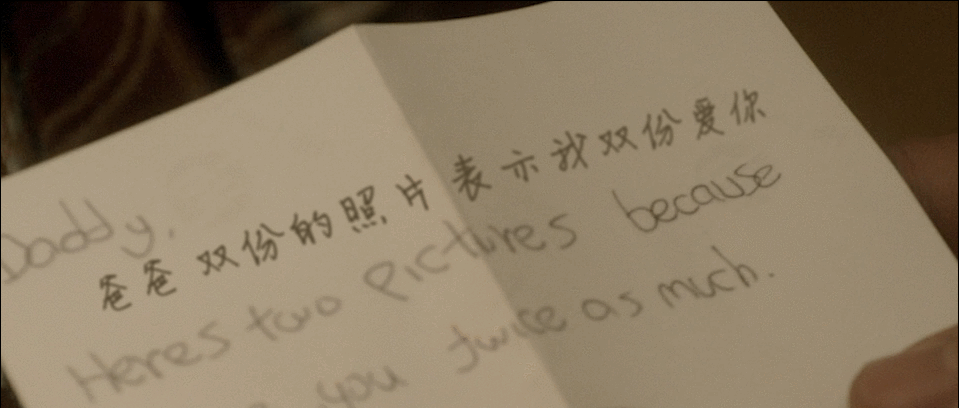 Daddy,
爸爸 双份的照片表示我双份爱你
Heres two pictures because
you twice as much.